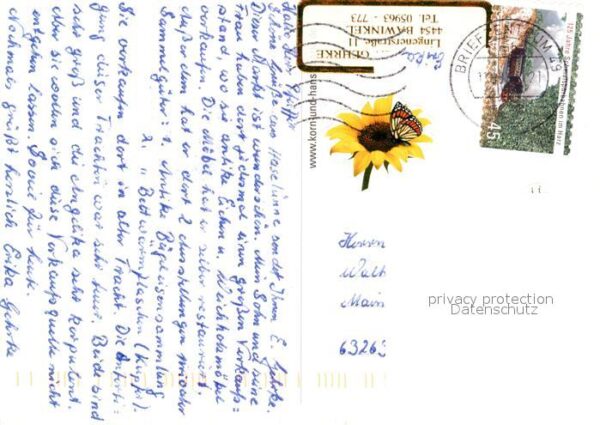 Schöne Grüße vom Haselünne sendet Ihnen E. Gehrke.
Dieser Markt ist wunderschön. Mein Sohn und seine
Frau haben dort jedesmal einen großen Verkaufs=
stand, wo sie antike Eichen u. Weichholzmöbel
verkaufen. Die Möbel hat er selber restauriert.
Außerdem hat er dort 2 Ausstellungen mit
Sammelgüter: 1. Antike Bügeleisensammlung
2. " Bettwärmflaschen (Kupfer).
Sie verkaufen dort in alter Tracht. Die
gung dieser Trachten war sehr teuer. Beide sind
sehr groß und die Angelika sehr korpulent.
aber sie wollen sich diese Verkaufsquelle nicht
entgehen lassen. Soviel für heute.
Nochmals grüßt herzlich Erika Gehrke
GEHRKE
Lingenerstraße 11
4454 BAWINKEL
Tel. 05963 - 773
www.kornlund-hans
BRIEFZENTRUM 49
125 Jahre Schmalspurbahnen im Harz
45
Herrn
Walt
Main
63263
privacy protection
Datenschutz